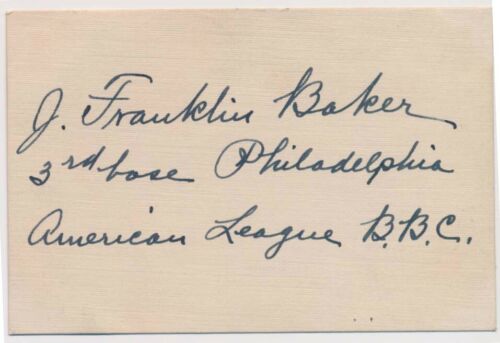 J. Franklin Baker
3rd base Philadelphia
American League B.B.C.